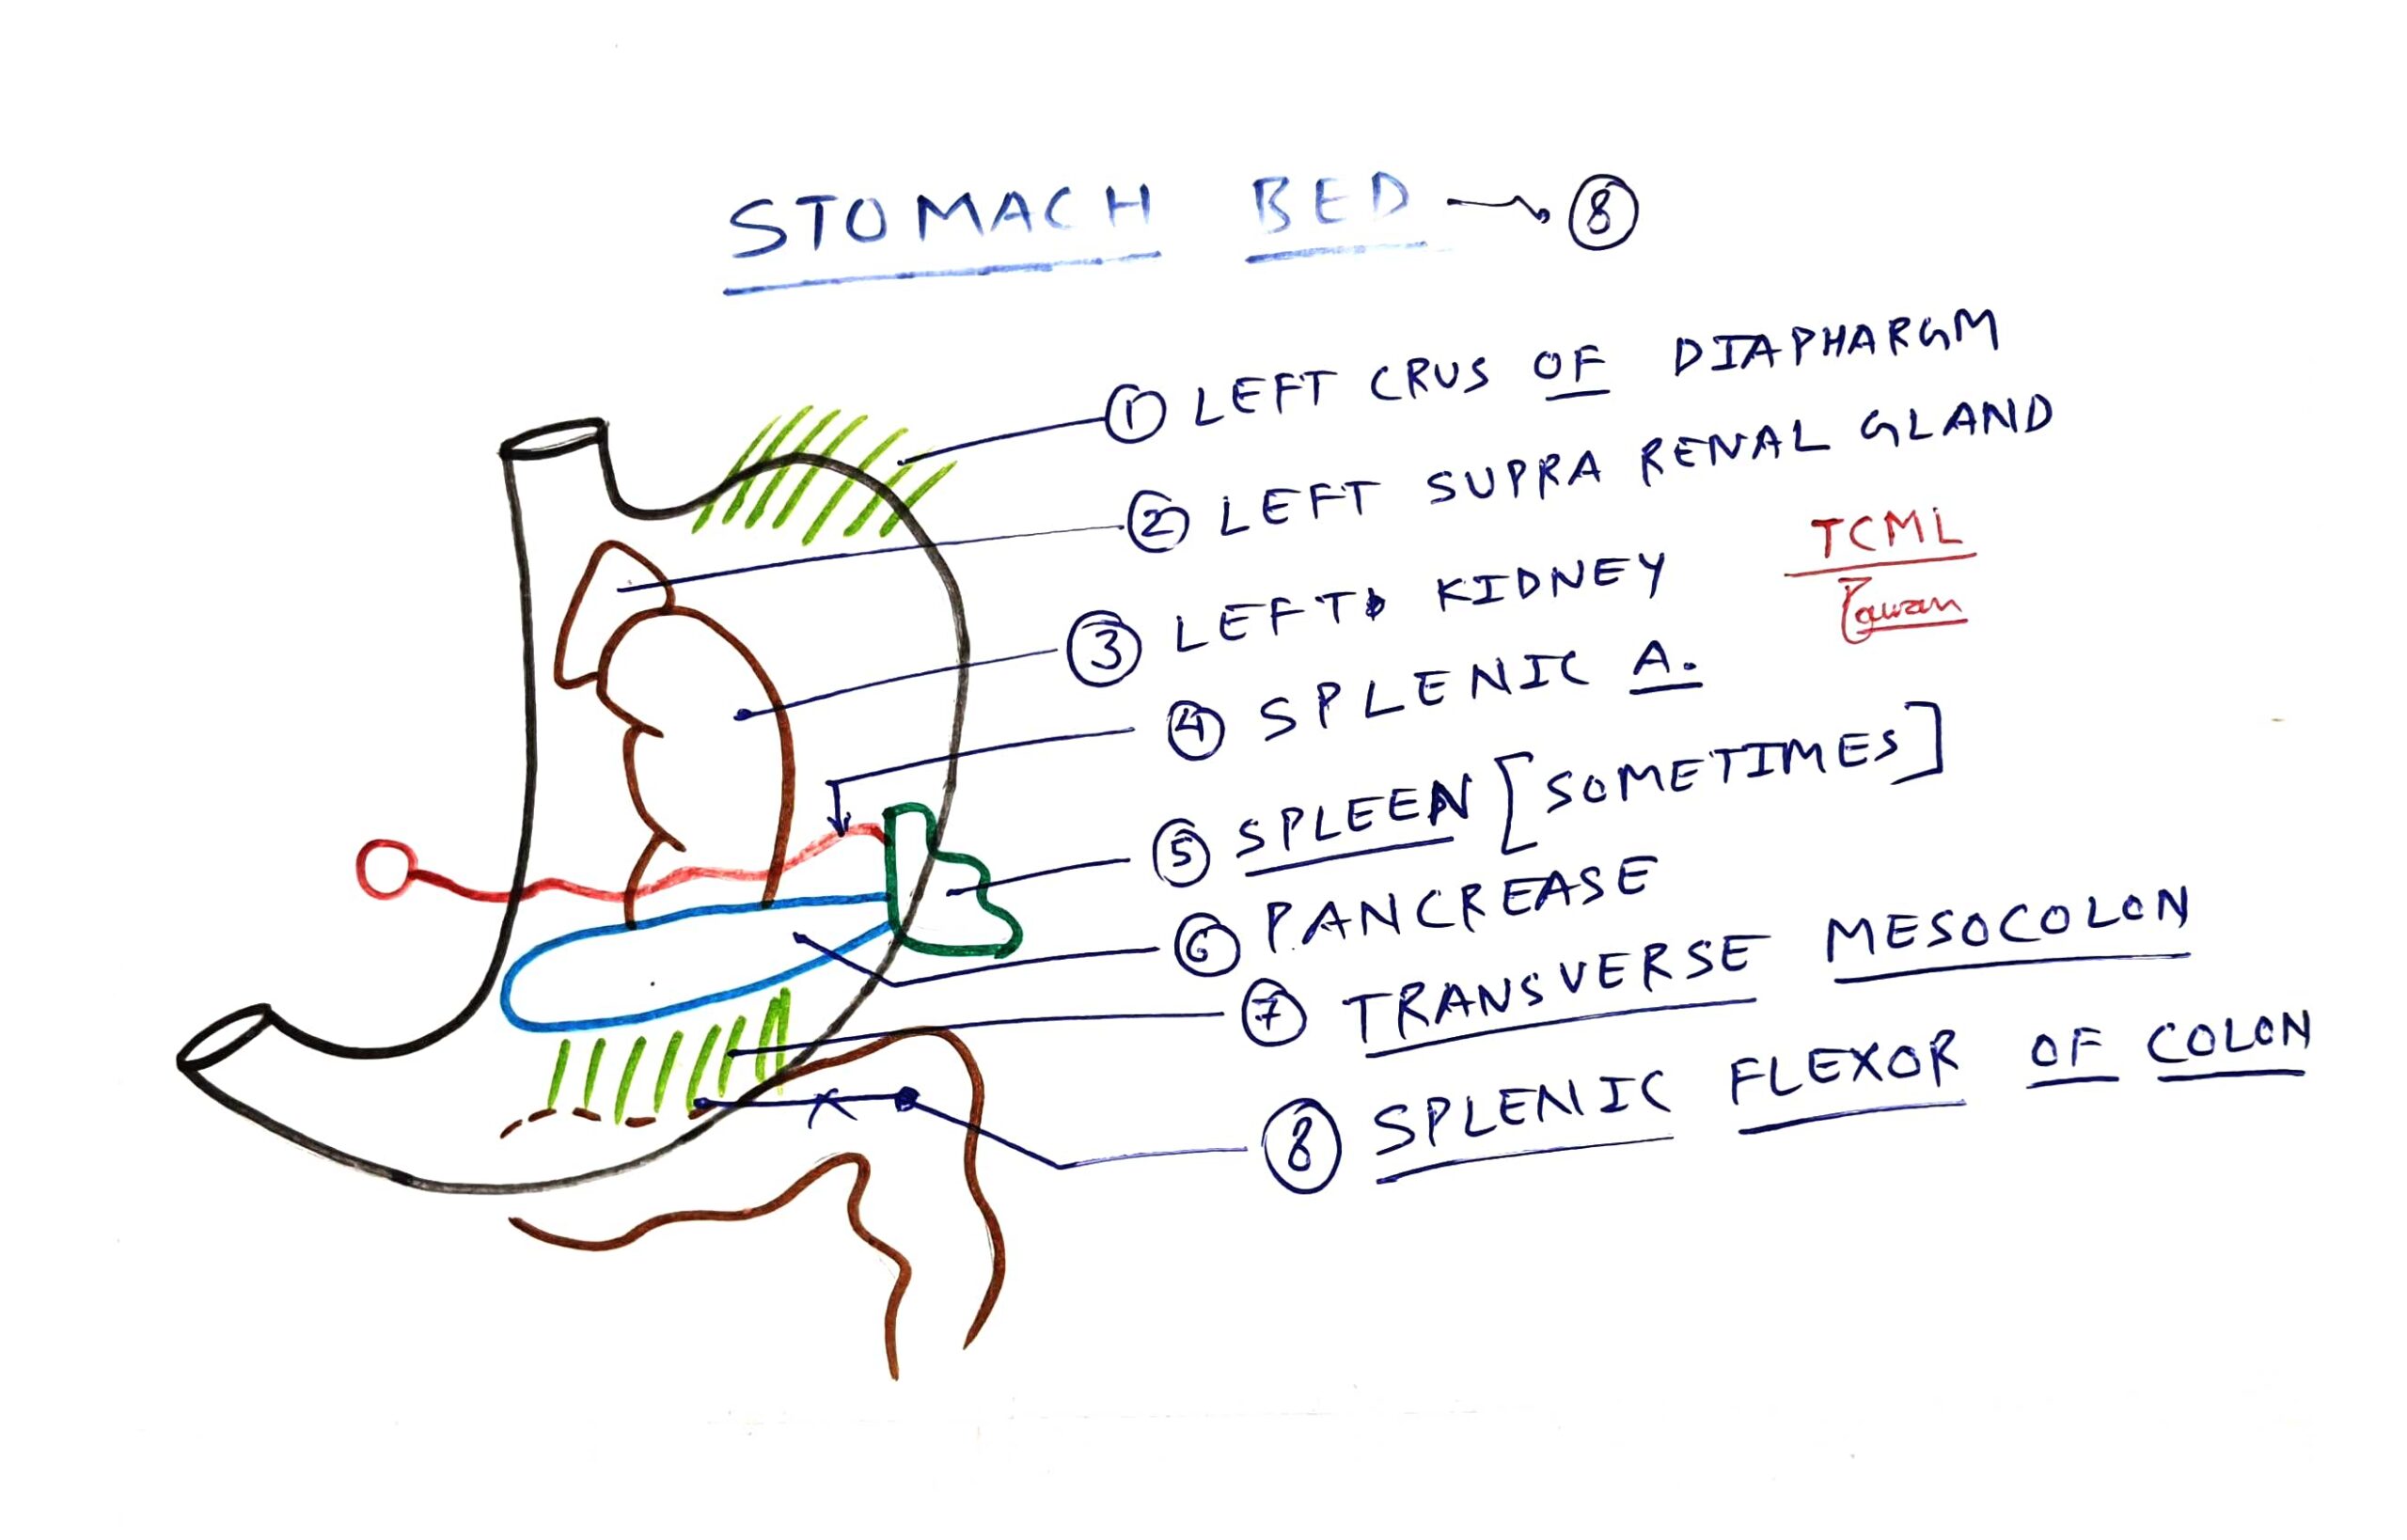 STOMACH BED → 8
1 LEFT CRUS OF DIAPHARGM
2 LEFT SUPRA RENAL GLAND
TCML
Pawan
3 LEFT KIDNEY
4 SPLENIC A.
5 SPLEEN [SOMETIMES]
6 PANCREASE
7 TRANSVERSE MESOCOLON
8 SPLENIC FLEXOR OF COLON